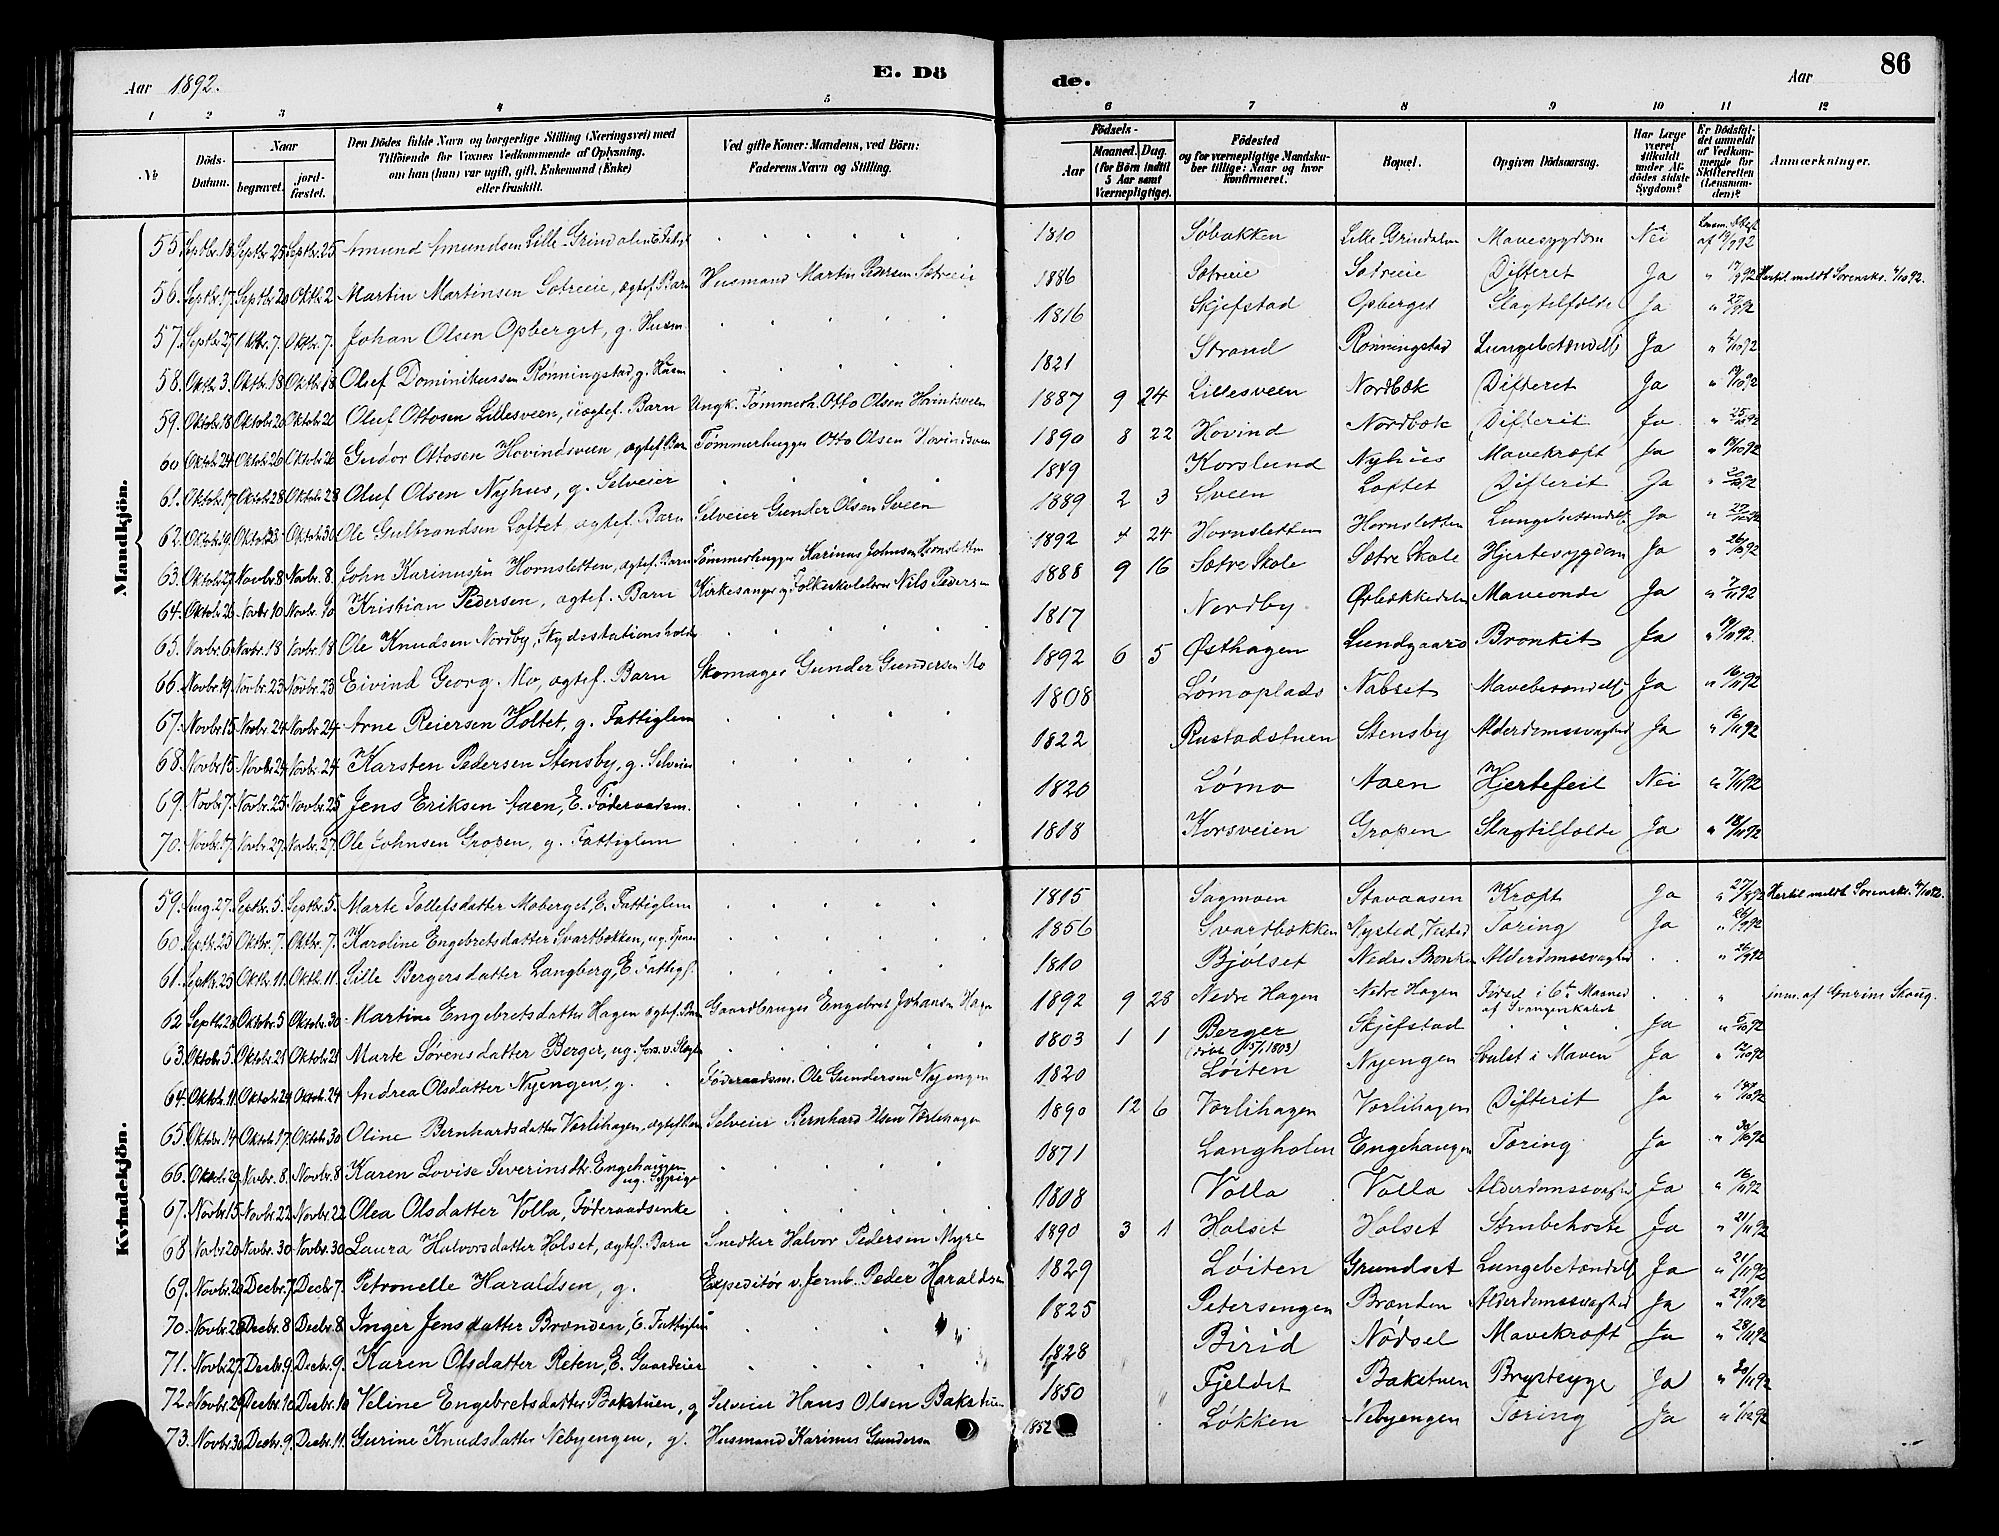 Aar 1892. E. Dö de. Aar 86
1 2 3 4 5 6 7 8 9 10 11 12
№ Döds-Datum. Naar begravet. jord-fæstet. Den Dödes fulde Navn og borgerlige Stilling (Næringsvei) med Tilföiende for Voxnes Vedkommende af Oplysning. om han (hun) var ugift, gift, Enkemand (Enke) eller fraskilt. Ved gifte Koner: Mandens, ved Börn: Faderens Navn og Stilling. Födsels- Aar Maaned. Dag. (for Börn indtil 5 Aar samt Værnepligtige). Födested og for værnepligtige Mandskaber tillige: Naar og hvor konfirmeret. Bopæl. Opgiven Dödsaarsag. Har Læge været tilkaldt under Afdødes sidste Sygdom? Er Dödsfaldet anmeldt af Vedkommende for Skifteretten (Lensmanden)? Anmærkninger.
Mandkjön.
55. Septbr. 18 Septbr. 25 Septbr. 25 Amund Amundsen Lille-Grindalen E. Fattigl. 1810 Søbakken Lille Grindalen Mavesygdom Nei Lensm. Attest af 19/9 92
56. Septbr. 17. Septbr. 20 Oktb. 2 Martin Martinsen Sætreeie, ægtef. Barn Husmand Martin Pedersen Sætreeie 1886 Sætreeie Sætreeie Difterit Ja " 17/9 92 Hertil meldt Sorenskr. 4/10 92.
57. Septbr. 27. Oktbr. 7. Oktbr. 7. Johan Olsen Opberget, g. Husm. 1816 Skjefstad Opberget Slagtilfælde Ja " 27/9 92
58. Oktbr. 3. Oktbr. 18 Oktbr. 18 Olef Dominikussen Rønningstad, g. Husm 1821 Strand Rønningstad Lungebetændelse Ja " 4/10 92
59. Oktobr. 18 Oktobr. 20 Oktobr. 20 Oluf Ottosen Lillesveen, uægtef. Barn Ungk. Tømmerh. Otto Olsen Hovindsveen 1887 9 24 Lillesveen Nordbæk Difterit Ja " 19/10 92
60 Oktobr. 24 Oktobr. 26 Oktobr. 26 Gudor Ottosen Hovindsveen, ægtef. Barn Tømmerhugger Otto Olsen Hovindsveen 1890 8 22 Hovind Nordbæk Difterit Ja " 25/10 92
61. Oktobr. 17 Oktobr. 28 Oktobr. 28 Oluf Olsen Nyhus, g. Selveier 1849 Korslund Nyhus Mavekræft Ja
62. Oktobr. 19 Oktobr. 23 Oktobr. 30 Ole Gulbrandsen Loftet ægtef. Barn Selveier Gunder Olsen Sveen 1889 2 3 Sveen Loftet Difterit Ja
63. Oktobr. 27 Novbr. 8 Novbr. 8. John Karinussen Hornsletten, ægtef. Barn Tømmerhugger Karinus Johnsen Hornsletten 1892 4 24 Hornsletten Hornsletten Lungebetændelse Ja
64. Oktobr. 26 Novbr. 10 Novbr. 10 Kristian Pedersen, ægtef. Barn Kirkesanger og Folkeskolelærer Nils Pedersen 1888 9 16 Sætre Skole Sætre Skole Hjertesygdom Ja " 26/10 92
65. Novbr. 6 Novbr. 18 Novbr. 18 Ole Knudsen Nordby, Skydsstationsholder 1817 Nordby. Ørbækkedalen Maveonde Ja " 7/11 92
66. Novbr. 19 Novbr. 23 Novbr. 23 Eivind Georg. Mo, ægtef. Barn Skomager Gunder Gundersen Mo 1892 6 5 Østhagen Lundgaard Bronkit Ja " 19/11 92.
67. Novbr. 15 Novbr. 24 Novbr. 24 Arne Reiersen Holtet, g. Fattiglem 1808 Lømoplads Nabset Mavebetændelse Ja " 16/11 92
68. Novbr. 15. Novbr. 24 Novbr. 24 Karsten Pedersen Stensby, g. Selveier 1822 Rustadstuen Stensby Alderdomssvaghed Ja " 16/11 92
69. Novbr. 7. Novbr. 25 Novbr. 25 Jens Eriksen Aaen, E. Føderaadsm. 1820 Lømo Aaen Hjertefeil Nei " 7/11 92
70. Novbr. 17. Novbr. 27. Novbr. 27. Ole Johnsen Gropen, g. Fattiglem 1818 Korsveien Gropen Slagtilfælde Ja " 18/11 92
Kvindekjön.
59. Aug. 27. Septbr. 5. Septbr. 5. Marte Tollefsdatter Moberget, E. Fattiglem 1815 Sagmoen Stavaasen Kræft Ja " 27/8 92 Hertil meldt Sorenskr. 4/10 92.
60. Septb. 25 Oktbr. 7. Oktbr. 7. Karoline Engebretsdatter Svartbækken, ug. Tjener 1856 Svartbækken Nysted, Vestad Tæring Ja " 26/9 92
61. Septbr. 25 Oktbr. 11. Oktb. 11. Sille Bergersdatter Langberg, E. Fattigl. 1810 Bjølset Nedre Brenken Alderdomssvaghed " 26/9 92
62 Septbr. 28 Oktobr. 5 Oktobr. 30 Martine Engebretsdatter Hagen ægtef. Barn Gaardbruger Engebret Johansen Hagen 1892 9 28 Nedre Hagen Nedre Hagen Fødsel i 6te Maaned af Svangerskabet " inm. af Gurine Skaug.
63. Oktobr. 5. Oktobr. 21 Oktobr. 21 Marte Sørensdatter Berger, ug. fors. v. Slægten 1803 1 1 Berger (døbt 15/1 1803) Skjefstad Ja
64. Oktobr. 11 Oktobr. 24 Oktobr. 24 Andrea Olsdatter Nyengen, g. Føderaadsm. Ole Gundersen Nyengen 1820 Løiten Nyengen Svulst i Maven Ja " 12/10 92
65. Oktobr. 14 Oktobr. 17. Oktobr. 30 Oline Bernhardsdatter Vorlihagen, ægtef. Barn Selveier Bernhard Olsen Vorlihagen 1890 12 6 Vorlihagen Vorlihagen Difterit Ja
66. Oktobr. 29 Novbr. 8. Novbr. 8 Karen Lovise Severinsdtr. Engehaugen ug. Seypige 1871 Langholen Engehaugen Tæring Ja
67. Novbr. 15 Novbr. 22 Novbr. 22 Olea Olsdatter Volla, Føderaadsenke 1808 Volla Volla Alderdomssvaghed Ja " 16/11 92
68. Novbr. 20 Novbr. 30 Novbr. 30 Laura Halvorsdatter Holset, ægtef. Barn Snedker Halvor Pedersen Myre 1890 3 1 Holset Holset Strubehoste Ja " 21/11 92
69. Novbr. 20 Decbr. 7. Decbr. 7. Petronelle Haraldsen, g. Expeditør v. Jernb. Peder Haraldsen 1829 Løiten Grundset Lungebetændelse Ja " 21/11 92
70. Novbr. 28 Decbr. 8 Decbr. 8 Inger Jensdatter Brænden, E. Fattiglem 1825 Petersengen Brænden Alderdomssvaghed Ja " 29/11 92
71. Novbr. 27. Decbr. 9. Decbr. 9. Karen Olsdatter Reten, E. Gaardeier 1828 Birid Nødsel Mavekræft Ja " 28/11 92
72. Novbr. 29 Decbr. 10 Decbr. 10 Veline Engebretsdatter Bakstuen, g Selveier Hans Olsen Bakstuen 1850 Fjeldet Bakstuen Brystsyge Ja " 30/11 92
73. Novbr. 30 Decbr. 9. Decbr. 11. Gurine Knudsdatter Nebyengen, g. Husmand Karinus Gundersen 1852 Løkken Nebyengen Tæring Ja " 1/12 92